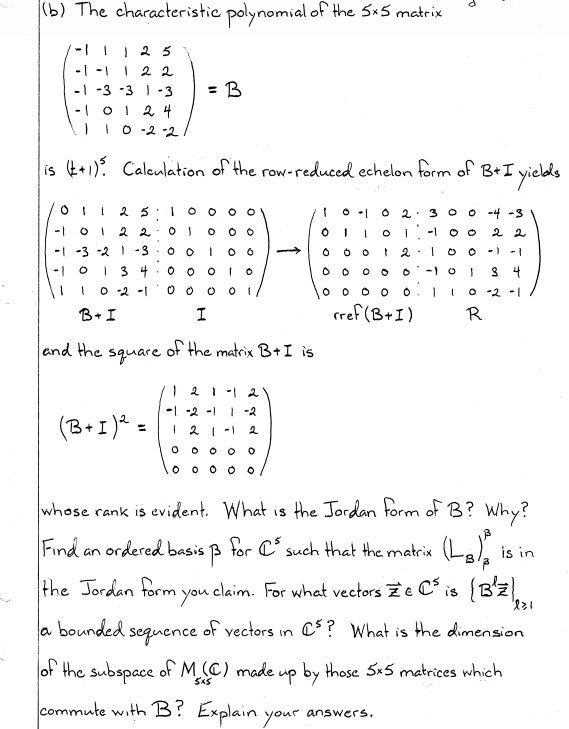 (b) The characteristic polynomial of the 5×5 matrix
-1 1 1 2 5
-1 -1 1 2 2
-1 -3 -3 1 -3 = B
-1 0 1 2 4
1 1 0 -2 -2
is (t+1)⁵. Calculation of the row-reduced echelon form of B+I yields
0 1 1 2 5 : 1 0 0 0 0   1 0 -1 0 2 : 3 0 0 -4 -3
-1 0 1 2 2 : 0 1 0 0 0   0 1 1 0 1 : -1 0 0 2 2
-1 -3 -2 1 -3 : 0 0 1 0 0 → 0 0 0 1 2 : 1 0 0 -1 -1
-1 0 1 3 4 : 0 0 0 1 0   0 0 0 0 0 : -1 0 1 3 4
1 1 0 -2 -1 : 0 0 0 0 1   0 0 0 0 0 : 1 1 0 -2 -1
B+I I rref(B+I) R
and the square of the matrix B+I is
1 2 1 -1 2
-1 -2 -1 1 -2
(B+I)² = 1 2 1 -1 2
0 0 0 0 0
0 0 0 0 0
whose rank is evident. What is the Jordan form of B? Why?
Find an ordered basis β for ℂ⁵ such that the matrix (L_B)^β_β is in
the Jordan form you claim. For what vectors z⃗ ∈ ℂ⁵ is {B^l z⃗}_{l≥1}
a bounded sequence of vectors in ℂ⁵? What is the dimension
of the subspace of M_{5×5}(ℂ) made up by those 5×5 matrices which
commute with B? Explain your answers.